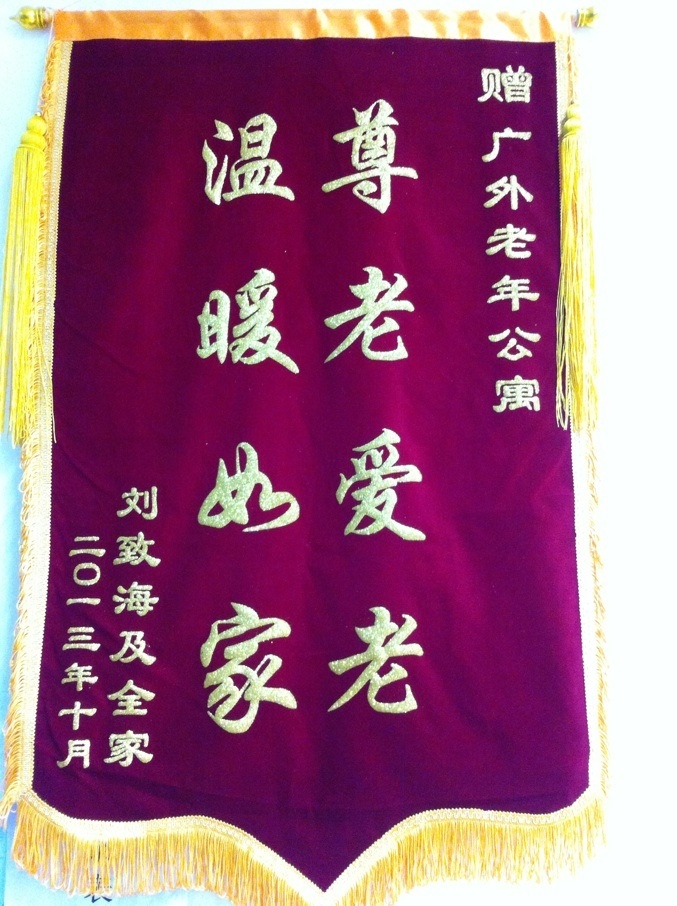 赠广外老年公寓
尊老爱老
温暖如家
刘致海及全家
二〇一三年十月